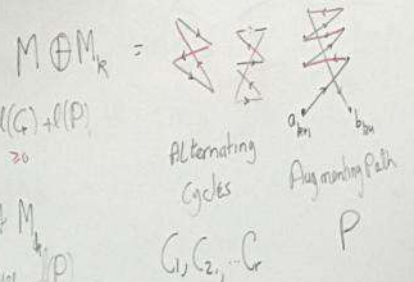 M ⊕ M_k =
l(C_r) + l(P)
≥0
Alternating
Cycles
Augmenting Path
C_1, C_2, ... C_r
P
M_k
(P)